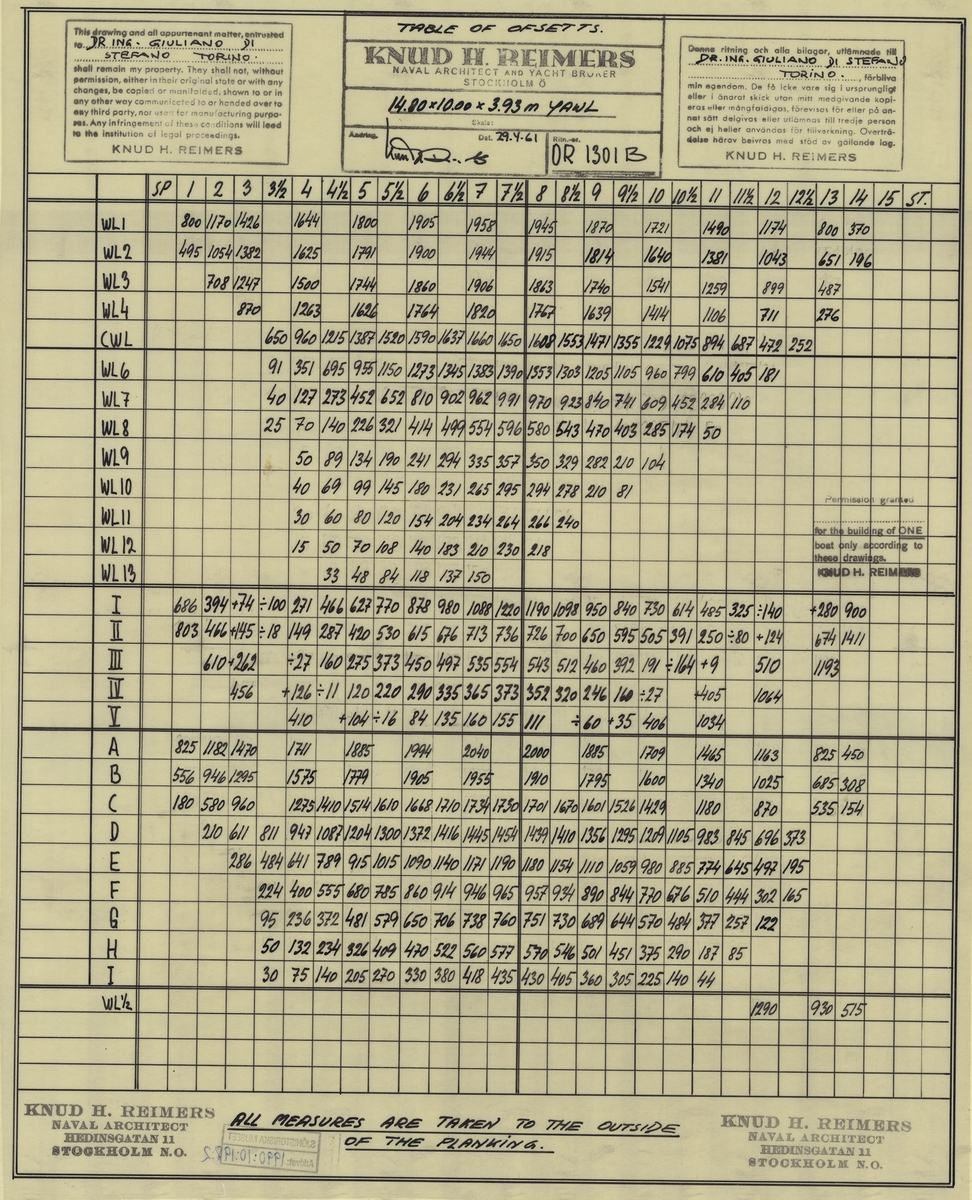 This drawing and all appurtenant matter, entrusted
to DR ING. GIULIANO DI
STEFANO TORINO.
shall remain my property. They shall not, without
permission, either in their original state or with any
changes, be copied or manifolded, shown to or in
any other way communicated to or handed over to
any third party, nor used for manufacturing purpo-
ses. Any infringement of these conditions will lead
to the institution of legal proceedings.
KNUD H. REIMERS
TABLE OF OFSETTS.
KNUD H. REIMERS
NAVAL ARCHITECT AND YACHT BROKER
STOCKHOLM Ö
14.80 x 10.00 x 3.93 m YAWL
Skala:
Ändring. Dat. 29.4.61 Ritn.-nr.
OR 1301 B
Denna ritning och alla bilagor, utlämnade till
DR. ING. GIULIANO DI STEFANO
TORINO. förbliva
min egendom. De få icke vare sig i ursprungligt
eller i ändrat skick utan mitt medgivande kopi-
eras eller mångfaldigas, förevisas för eller på an-
nat sätt delgivas eller utlämnas till tredje person
och ej heller användas för tillverkning. Överträ-
delse härav beivras med stöd av gällande lag.
KNUD H. REIMERS
SP 1 2 3 3½ 4 4½ 5 5½ 6 6½ 7 7½ 8 8½ 9 9½ 10 10½ 11 11½ 12 12½ 13 14 15 ST.
WL1 800 1170 1426 1644 1800 1905 1958 1945 1870 1721 1490 1174 800 370
WL2 495 1054 1382 1625 1791 1900 1944 1915 1814 1640 1381 1043 651 196
WL3 708 1247 1500 1744 1860 1906 1863 1740 1541 1259 899 487
WL4 870 1263 1626 1764 1820 1767 1639 1414 1106 711 276
CWL 650 960 1215 1387 1520 1590 1637 1660 1650 1608 1553 1471 1355 1229 1075 894 687 472 252
WL6 91 351 695 955 1150 1273 1345 1383 1390 1353 1303 1205 1105 960 799 610 405 181
WL7 40 127 273 452 652 810 902 962 991 970 923 840 741 609 452 284 110
WL8 25 70 140 226 321 414 499 554 596 580 543 470 403 285 174 50
WL9 50 89 134 190 241 294 335 357 350 329 282 210 104
WL10 40 69 99 145 180 231 265 295 294 278 210 81
WL11 30 60 80 120 154 204 234 264 266 240
WL12 15 50 70 108 140 183 210 230 218
WL13 33 48 84 118 137 150
Permission granted
for the building of ONE
boat only according to
these drawings.
KNUD H. REIMERS
I 686 394 +74 ÷100 271 466 627 770 878 980 1088 1220 1190 1098 950 840 730 614 485 325 ÷140 +280 900
II 803 466 +145 ÷18 149 287 420 530 615 676 713 736 726 700 650 595 505 391 250 ÷80 +124 674 1411
III 610 +262 ÷27 160 275 373 450 497 535 554 543 512 460 392 191 ÷164 +9 510 1193
IV 456 +126 ÷11 120 220 290 335 365 373 352 320 246 160 ÷27 +405 1064
V 410 +104 ÷16 84 135 160 155 111 ÷60 +35 406 1034
A 825 1182 1470 1741 1885 1994 2040 2000 1885 1709 1465 1163 825 450
B 556 946 1295 1575 1779 1905 1955 1910 1795 1600 1340 1025 685 308
C 180 580 960 1275 1410 1514 1610 1668 1710 1734 1730 1701 1670 1601 1526 1429 1180 870 535 154
D 210 611 811 947 1087 1204 1300 1372 1416 1445 1454 1439 1410 1356 1295 1209 1105 983 845 696 373
E 286 484 641 789 915 1015 1090 1140 1171 1190 1180 1154 1110 1059 980 885 774 645 497 195
F 224 400 555 680 785 860 914 946 965 957 934 890 844 770 676 510 444 302 165
G 95 236 372 481 579 650 706 738 760 751 730 689 644 570 484 377 257 122
H 50 132 234 326 409 470 522 560 577 570 546 501 451 375 290 187 85
I 30 75 140 205 270 330 380 418 435 430 405 360 305 225 140 44
WL½ 1290 930 575
KNUD H. REIMERS
NAVAL ARCHITECT
HEDINSGATAN 11
STOCKHOLM N.O.
ALL MEASURES ARE TAKEN TO THE OUTSIDE
OF THE PLANKING.
KNUD H. REIMERS
NAVAL ARCHITECT
HEDINSGATAN 11
STOCKHOLM N.O.